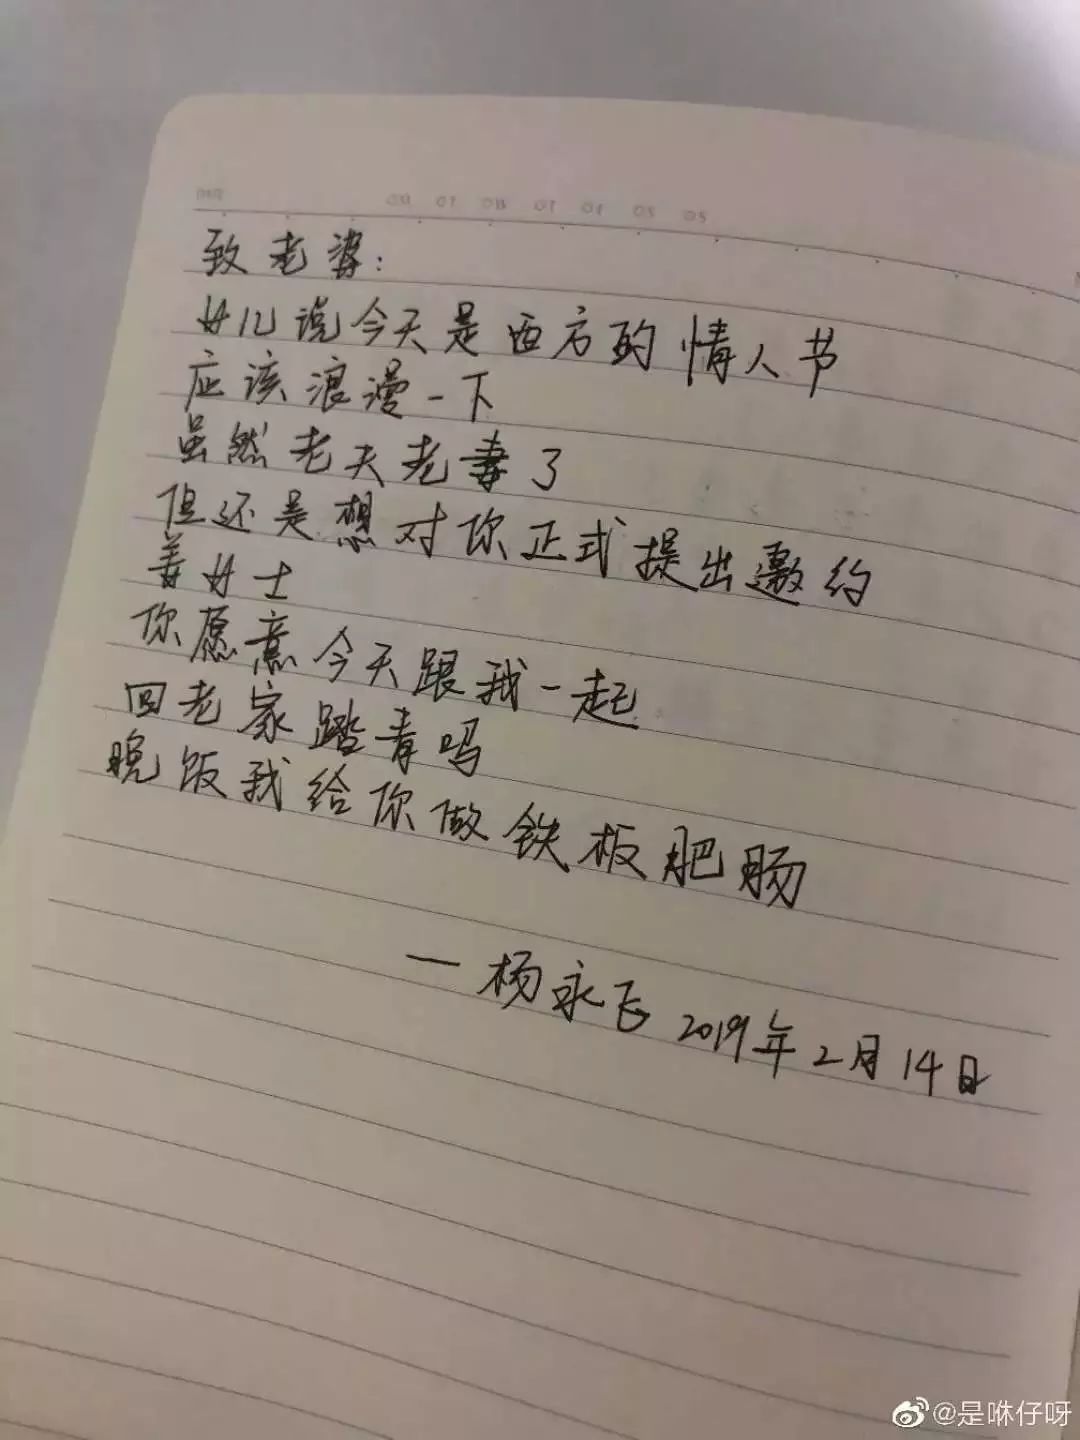 致老婆：
女儿说今天是西方的情人节
应该浪漫一下
虽然老夫老妻了
但还是想对你正式提出邀约
姜女士
你愿意今天跟我一起
回老家踏青吗
晚饭我给你做铁板肥肠
一杨永飞 2019年2月14日
@是咻仔呀